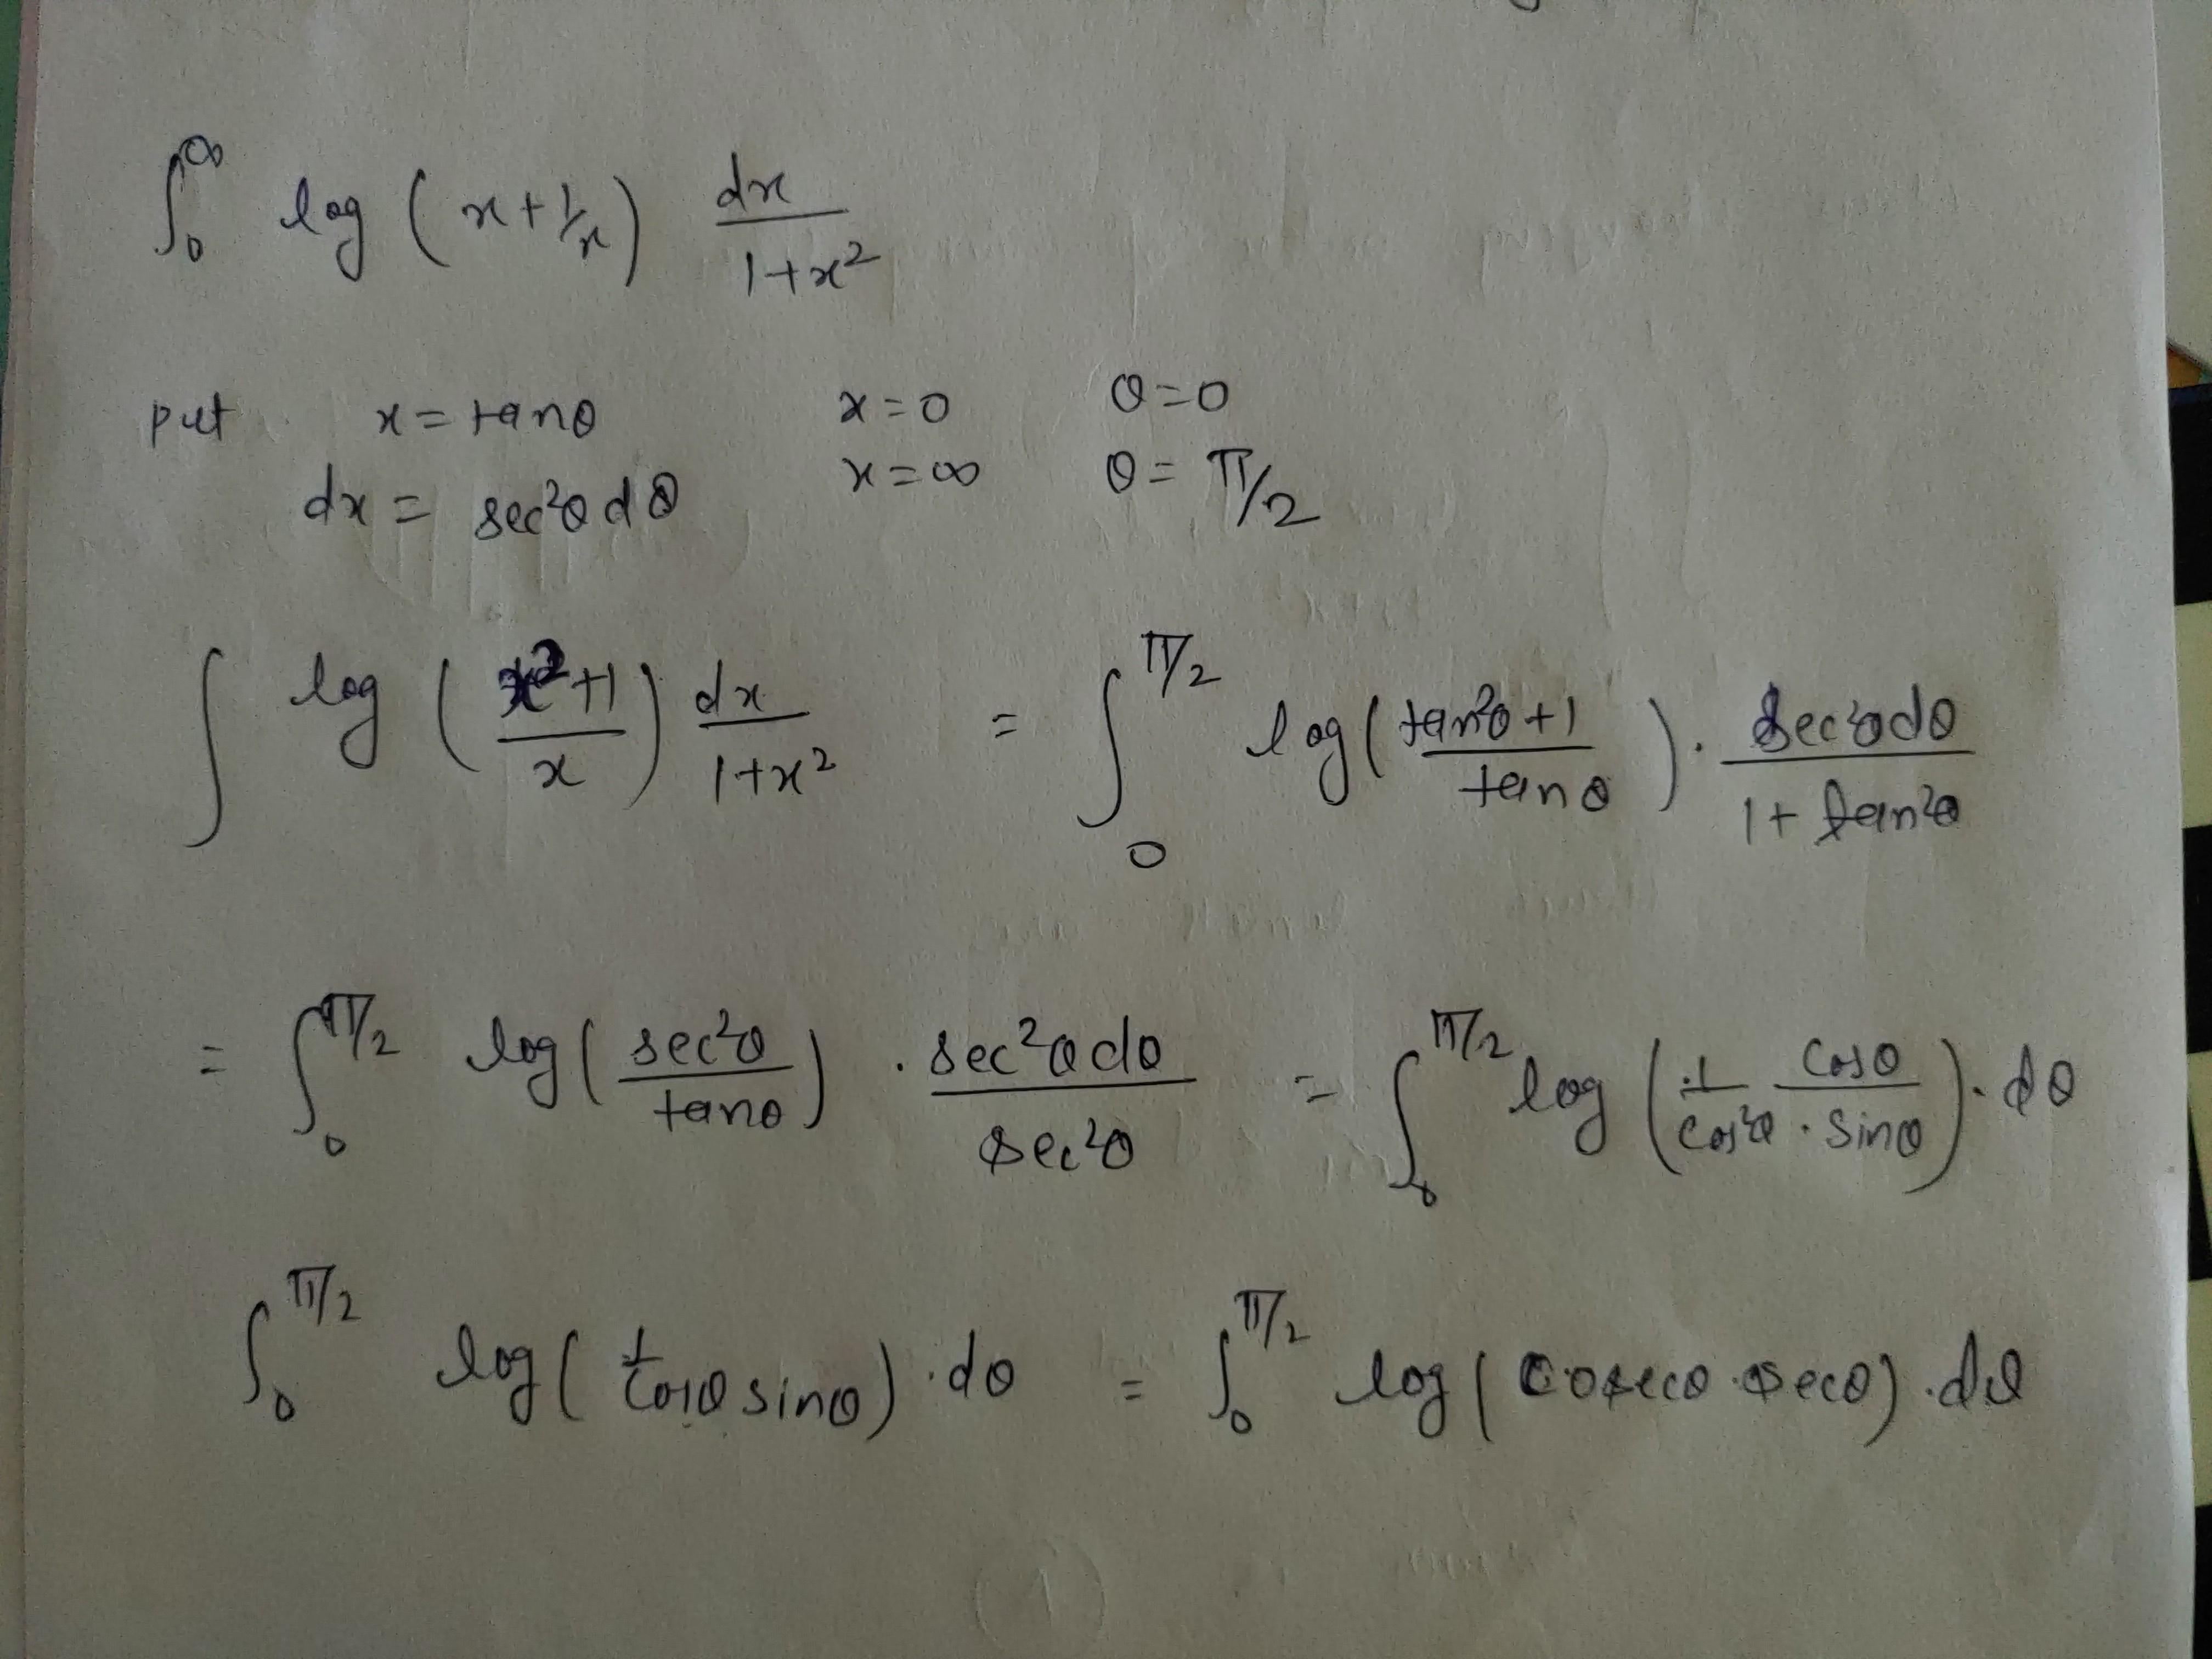 ∫₀^∞ log (x+1/x) dx/(1+x²)
put x=tanθ x=0 θ=0
dx = sec²θ dθ x=∞ θ= π/2
∫ log ((x²+1)/x) dx/(1+x²) = ∫₀^π/2 log((tan²θ+1)/tanθ) · sec²θdθ/(1+tan²θ)
= ∫₀^π/2 log(sec²θ/tanθ) · sec²θdθ/sec²θ = ∫₀^π/2 log (1/cos²θ · cosθ/sinθ) · dθ
∫₀^π/2 log(1/cosθ sinθ) · dθ = ∫₀^π/2 log(cosecθ · secθ) · dθ